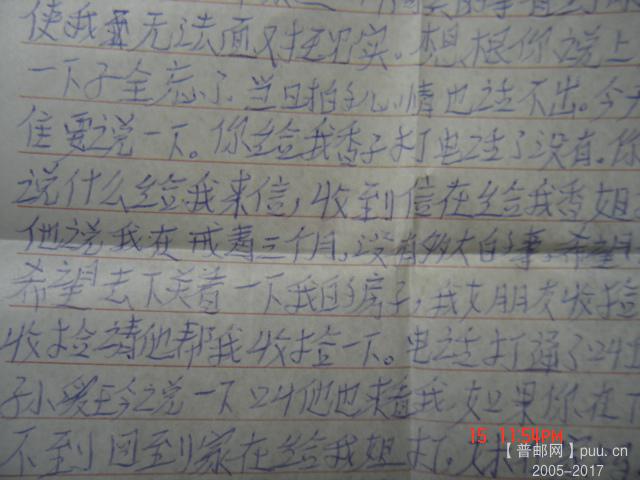 使我无法面对现实。想想你说上
一下子全忘了。当日拍手心情也话不出。今天
住要说一下。你给我香子打电话了没有。你
说什么给我来信,收到信在给我香姐
他说我在戒毒三个月,没有多大白事。希望
希望去下关着一下我的房子,我女朋友收捡
收捡请他帮我收捡一下。电话打通了叫
子小爱至今说一下叫他也来看我如果你在
不到回到家在给我姐打。
15 11:54PM
【普邮网】puu.cn
2005-2017